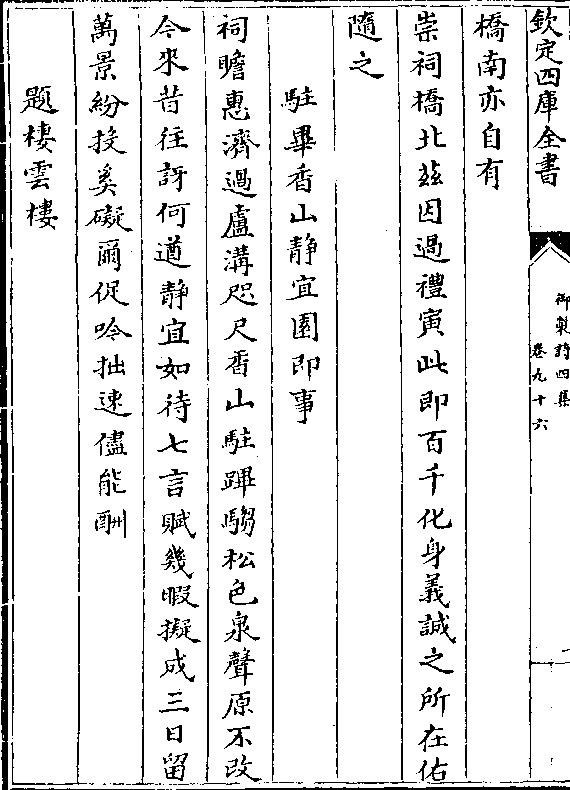 欽定四庫全書
御製詩四集
卷九十六
橋南亦自有
崇祠橋北兹因過禮寅此即百千化身義誠之所在佑
隨之
駐畢香山静宜園即事
祠瞻惠濟過盧溝咫尺香山駐蹕騶松色泉聲原不改
今來昔往訝何遒静宜如待七言賦幾暇擬成三日留
萬景紛投奚礙爾促吟拙速儘能酬
題棲雲樓